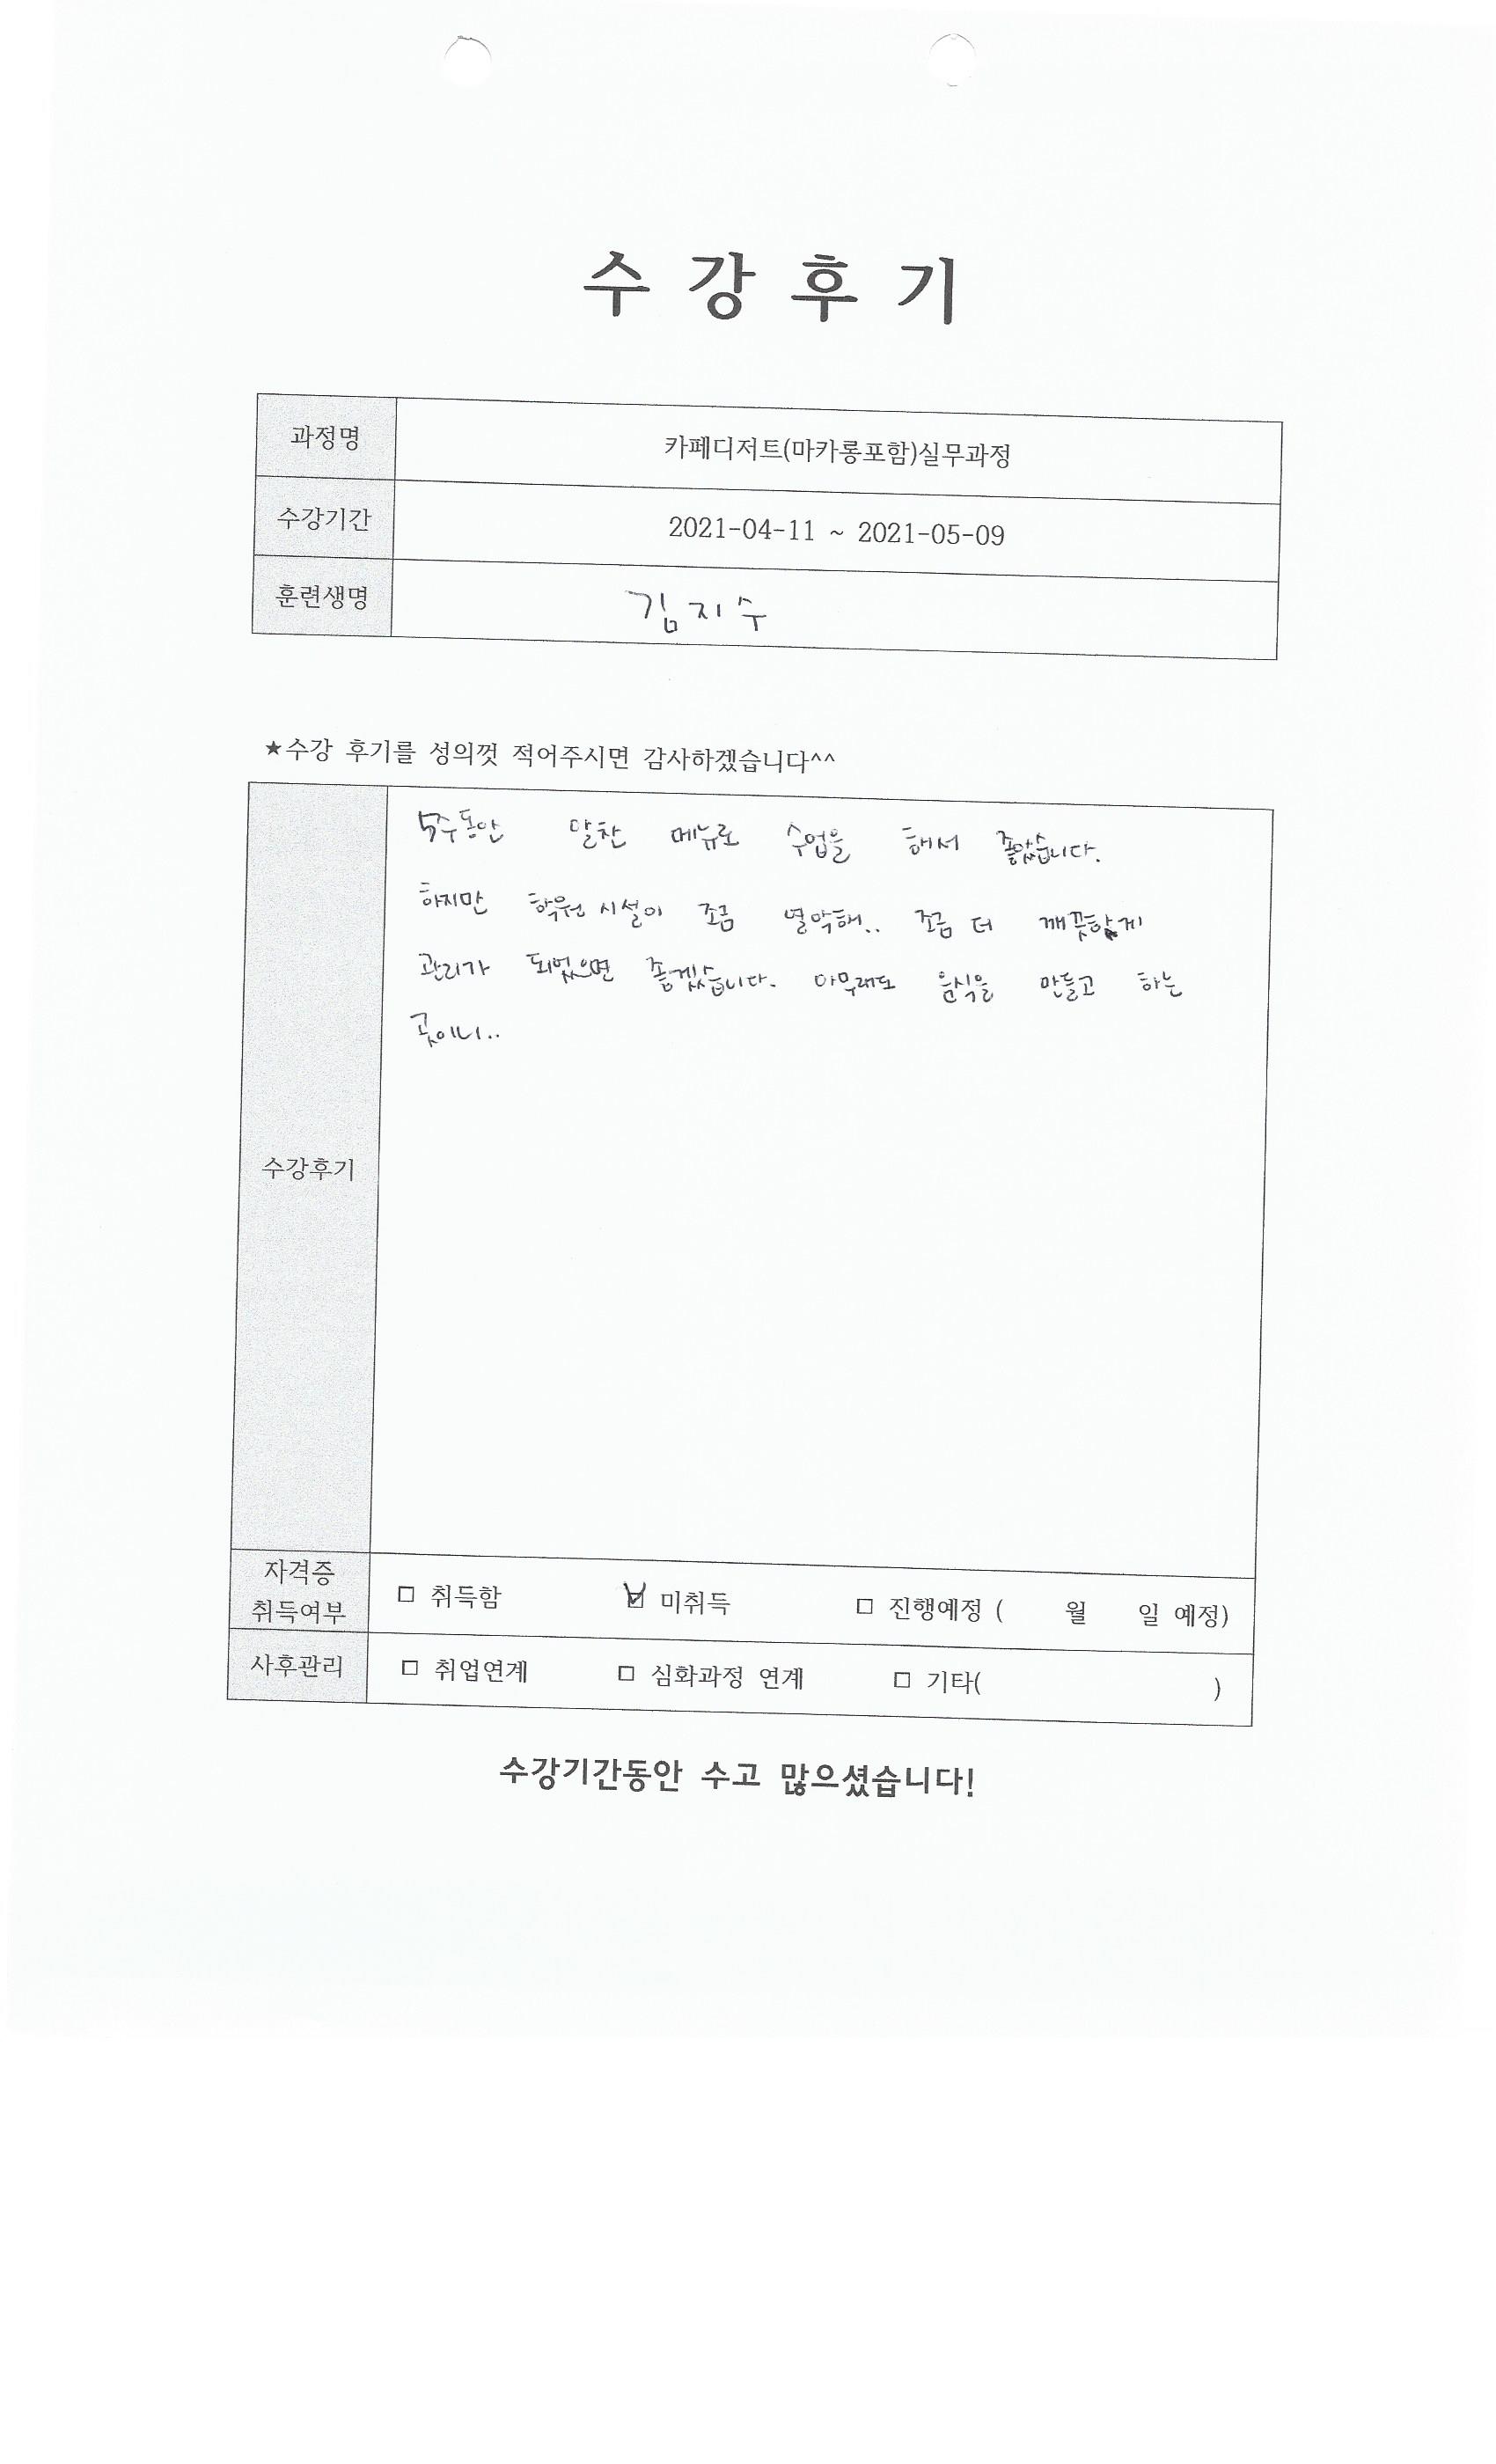 수 강 후 기
과정명 카페디저트(마카롱포함)실무과정
수강기간 2021-04-11 ~ 2021-05-09
훈련생명 김지수
★수강 후기를 성의껏 적어주시면 감사하겠습니다^^
5주동안 알찬 메뉴로 수업을 해서 좋았습니다.
하지만 학원 시설이 조금 열악해.. 조금 더 깨끗하게
관리가 되었으면 좋겠습니다. 아무래도 음식을 만들고 하는
곳이니..
수강후기
자격증
취득여부 □ 취득함 ☑ 미취득 □ 진행예정 ( 월 일 예정)
사후관리 □ 취업연계 □ 심화과정 연계 □ 기타( )
수강기간동안 수고 많으셨습니다!